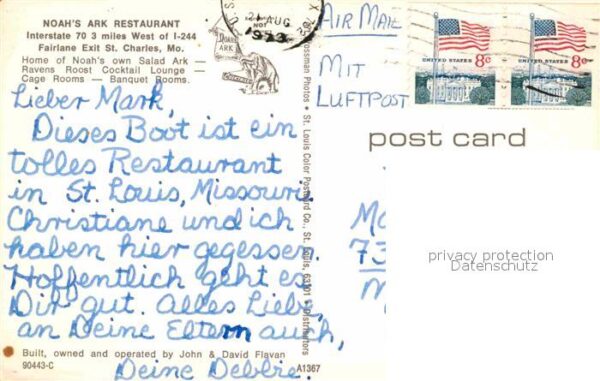 NOAH'S ARK RESTAURANT
Interstate 70 3 miles West of I-244
Fairlane Exit St. Charles, Mo.
Home of Noah's own Salad Ark —
Ravens Roost Cocktail Lounge —
Cage Rooms — Banquet Rooms.
Lieber Mark,
Dieses Boot ist ein
tolles Restaurant
in St. Louis, Missouri.
Christiane und ich
haben hier gegessen.
Hoffentlich geht es
Dir gut. Alles Liebe,
an Deine Eltern auch,
Deine Debbie.
Built, owned and operated by John & David Flavan
90443-C
A1367
21 AUG
1973
NOAH'S
ARK
Crossman Photos • St. Louis Color Postcard Co., St. Louis, 63101 • Distributors
AIR MAIL
MIT
LUFTPOST
UNITED STATES 8c
UNITED STATES 8c
post card
73
privacy protection
Datenschutz